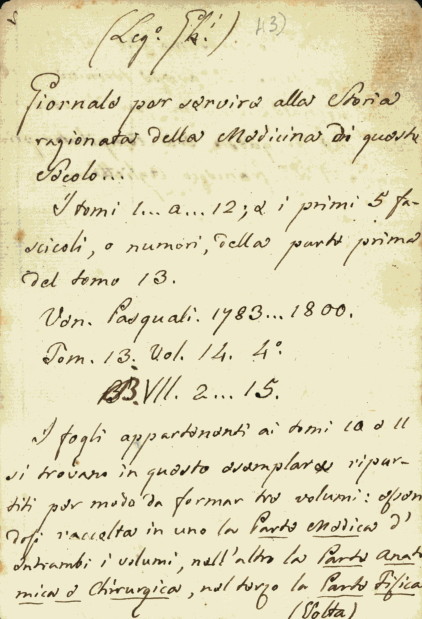 (Leg.º Gh.i) 43)
Giornale per servire alla Storia
ragionata della Medicina di questo
Secolo...
I tomi 1... a... 12; e i primi 5 fa-
scicoli, o numeri, della parte prima
del tomo 13.
Ven. Pasquali. 1783...1800.
Tom. 13. Vol. 14. 4º
B.VII. 2...15.
I fogli appartenenti ai tomi 10 e 11
si trovano in questo esemplare ripar-
titi per modo da formar tre volumi: essen
dosi raccolta in uno la Parte Medica d'
entrambi i volumi, nell'altro la Parte Anato
mica e Chirurgica, nel terzo la Parte Fisica
(Volta)